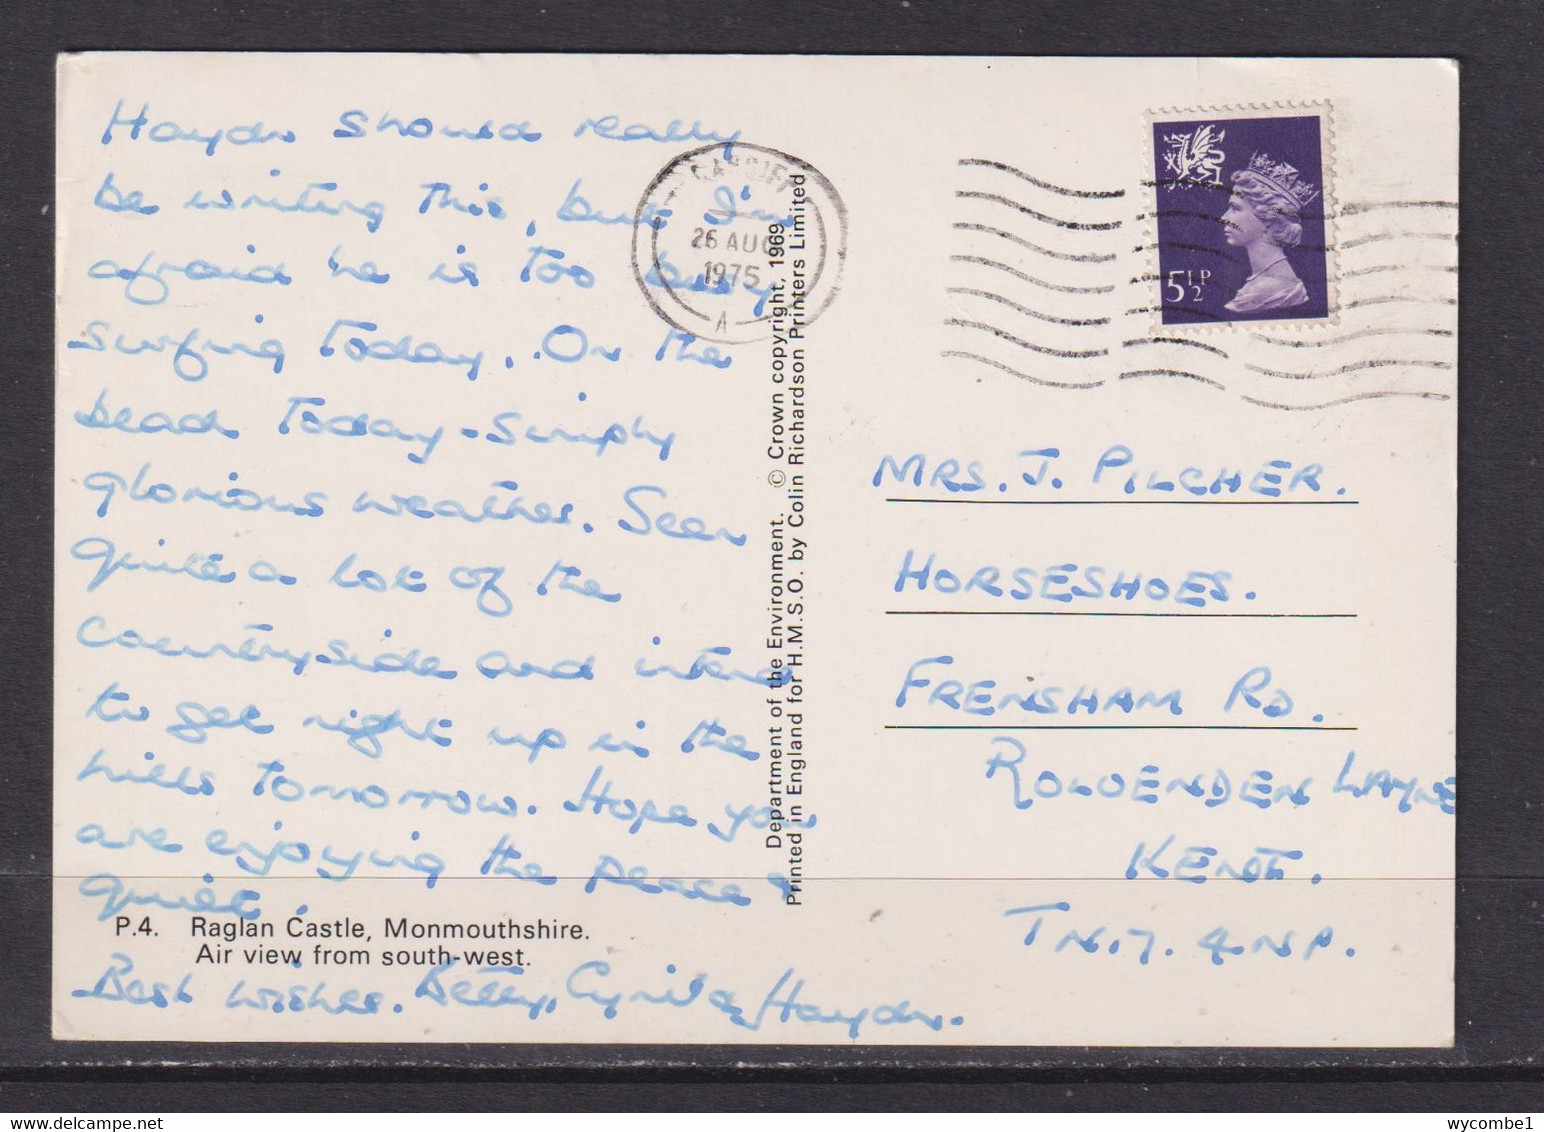 Haydn should really
be writing this, but I'm
afraid he is too busy
surfing today. On the
beach today - simply
glorious weather. Seen
quite a lot of the
countryside and intend
to get right up in the
hills tomorrow. Hope you
are enjoying the peace &
quiet.
P.4. Raglan Castle, Monmouthshire.
Air view from south-west.
Best wishes. Betty, Cyril & Haydn.
Department of the Environment. © Crown copyright, 1969
Printed in England for H.M.S.O. by Colin Richardson Printers Limited
CARDIFF
26 AUG
1975
A
5½P
MRS. J. PILCHER.
HORSESHOES.
FRENSHAM RD.
ROLVENDEN LAYNE
KENT.
TN.17. 4NP.
wycombe1